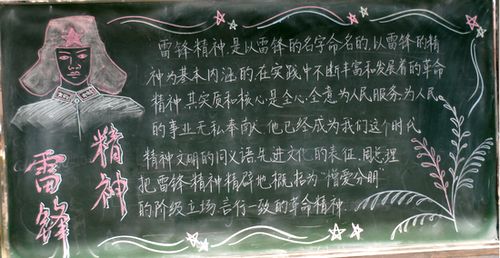 雷锋精神
雷锋精神,是以雷锋的名字命名的,以雷锋的精
神为基本内涵的,在实践中不断丰富和发展着的革命
精神,其实质和核心是全心全意为人民服务,为人民
的事业无私奉献。他已经成为我们这个时代
精神文明的同义语,先进文化的表征,周总理
把雷锋精神精辟地概括为“憎爱分明
的阶级立场、言行一致的革命精神